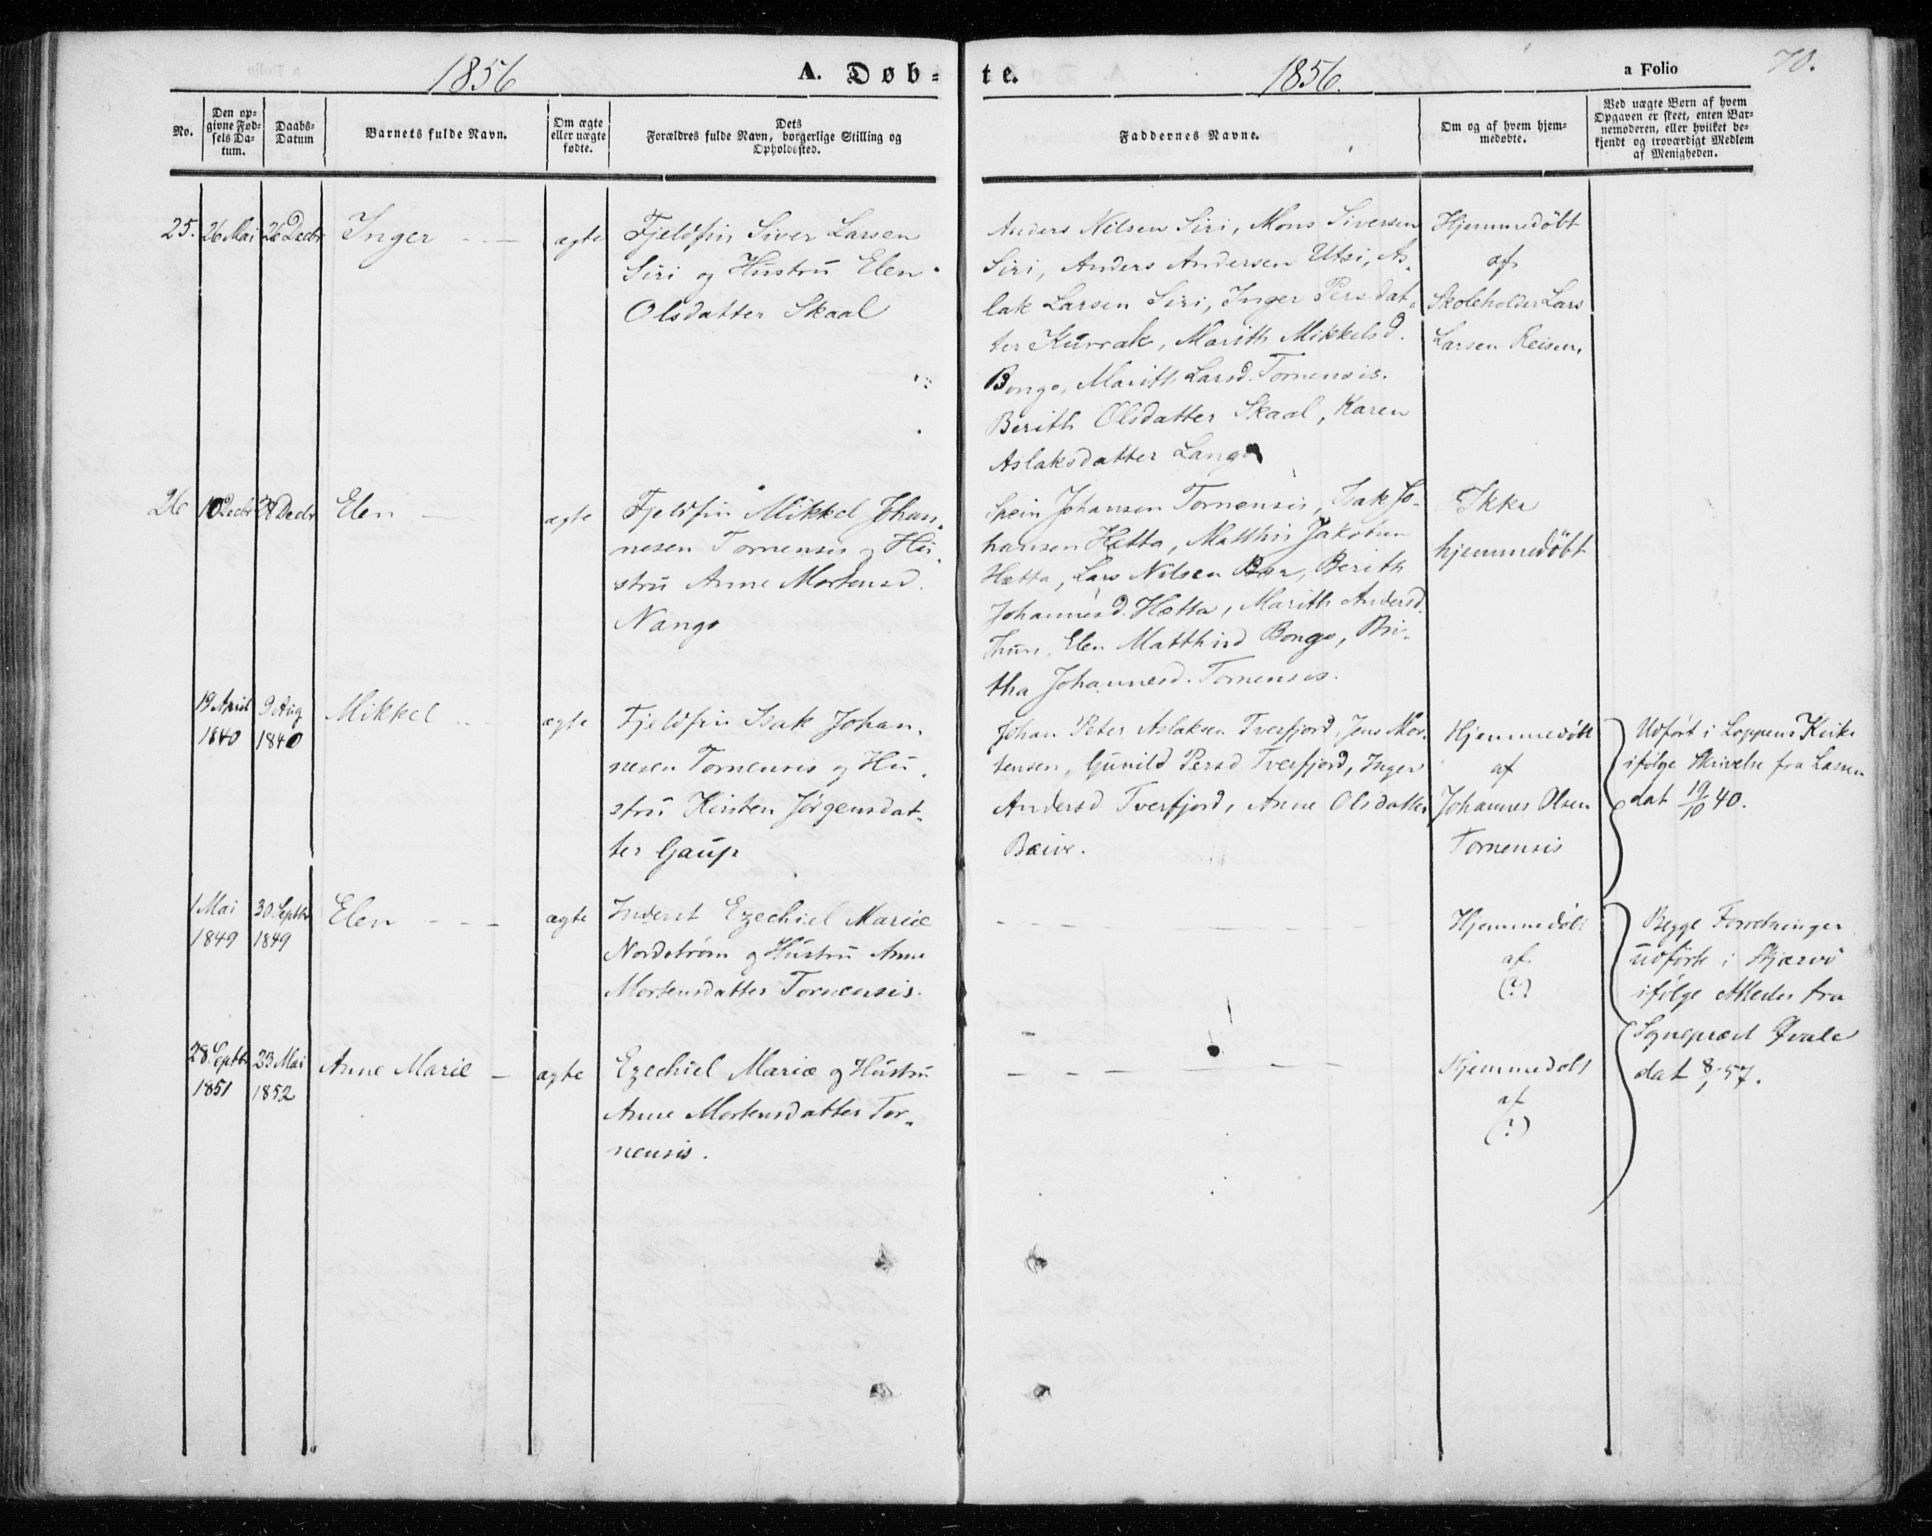 1856
A. Døb-
te.
1856.
a Folio
70.
No.
Den op-
givne Fød-
sels Da-
tum.
Daabs-
Datum
Barnets fulde Navn.
Om ægte
eller uægte
fødte.
Dets
Forældres fulde Navn, borgerlige Stilling og
Opholdssted.
Faddernes Navne.
Om og af hvem hjem-
medøbte.
Ved uægte Born af hvem
Opgaven er skeet, enten Bar-
nemoderen, eller hvilket be-
kjendt og troværdigt Medlem
af Menigheden.
25.
26 Mai
26 Decbr
Inger
ægte
Fjeldfin Siver Larsen
Siri og Hustru Elen
Olsdatter Skaal
Anders Nilsen Siri, Mons Siversen
Siri, Anders Andersen Utsi, As-
lak Larsen Siri, Inger Persdat-
ter Kurrak, Marith Mikkelsd.
Bongo, Marith Larsd. Tornensis.
Berith Olsdatter Skaal, Karen
Aslaksdatter Lango
Hjemmedöbt
af
Skoleholder Lars
Larsen Reisen.
26
10 Decbr
28 Decbr
Elen
ægte
Fjeldfin Mikkel Johan-
nesen Tornensis og Hu-
stru Anne Mortensd.
Nango
Spein Johansen Tornensis, Isak Jo-
hansen Hætta, Matthis Jakobsen
Hætta, Lars Nilsen Bær, Berith
Johannesd. Hætta, Marith Andersd.
Thuri, Elen Matthisd Bongo, Bri-
tha Johannesd. Tornensis.
Ikke
hjemmedöbt
19 April
1840
9 Aug
1840
Mikkel
ægte
Fjeldfin Isak Johan-
nesen Tornensis og Hu-
stru Kirsten Jörgensdat-
ter Gaup
Johan Peter Aslaksen Tverfjord, Jens Mor-
tensen, Gunild Persd Tverfjord, Inger
Andersd Tverfjord, Anne Olsdatter
Bæive.
Hjemmedöbt
af
Johannes Olsen
Tornensis
Udfört i Loppens Kirke
ifölge Skrivelse fra Lassen
dat 19/10 40.
1 Mai
1849
30 Septbr
1849
Elen
ægte
Inderst Ezechiel Mariæ
Nordström og Hustru Anne
Mortensdatter Tornensis.
Hjemmedöbt
af
(?)
Begge Forretninger
udförte i Skjærvö
ifölge Attester fra
Sognepræst Qvale
dat 8/1 57.
28 Septbr
1851
23 Mai
1852
Anne Marie
ægte
Ezechiel Mariæ og Hustru
Anne Mortensdatter Tor-
nensis.
Hjemmedöbt
af
(?)